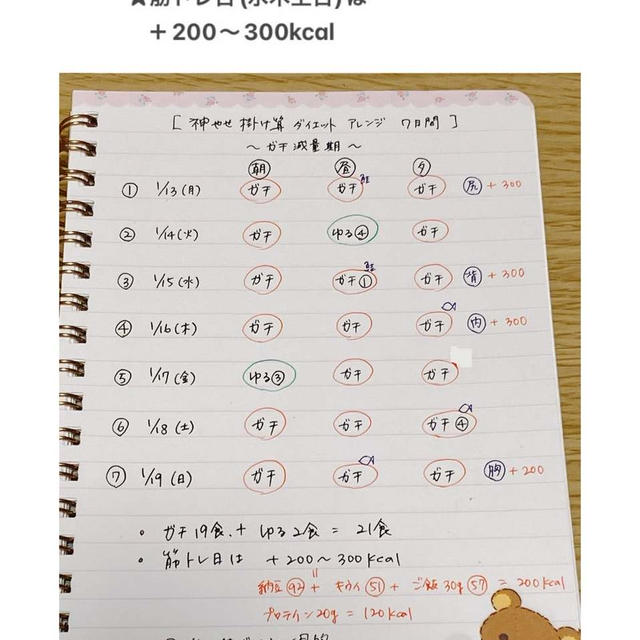 ＋200〜300kcal
[ 神やせ 掛け算 ダイエット アレンジ 7日間 ]
〜 ガチ 減量期 〜
朝 昼 夕
① 1/13 (月) ガチ ガチ ガチ 尻 + 300
② 1/14 (火) ガチ ゆる④ ガチ
③ 1/15 (水) ガチ ガチ① ガチ 背 + 300
④ 1/16 (木) ガチ ガチ ガチ 内 + 300
⑤ 1/17 (金) ゆる③ ガチ ガチ
⑥ 1/18 (土) ガチ ガチ ガチ④
⑦ 1/19 (日) ガチ ガチ ガチ 胸 + 200
・ ガチ 19食 + ゆる 2食 = 21食
・ 筋トレ日は +200〜300kcal
納豆 92 + キウイ 51 + ご飯 30g 57 = 200kcal
プロテイン20g = 120kcal